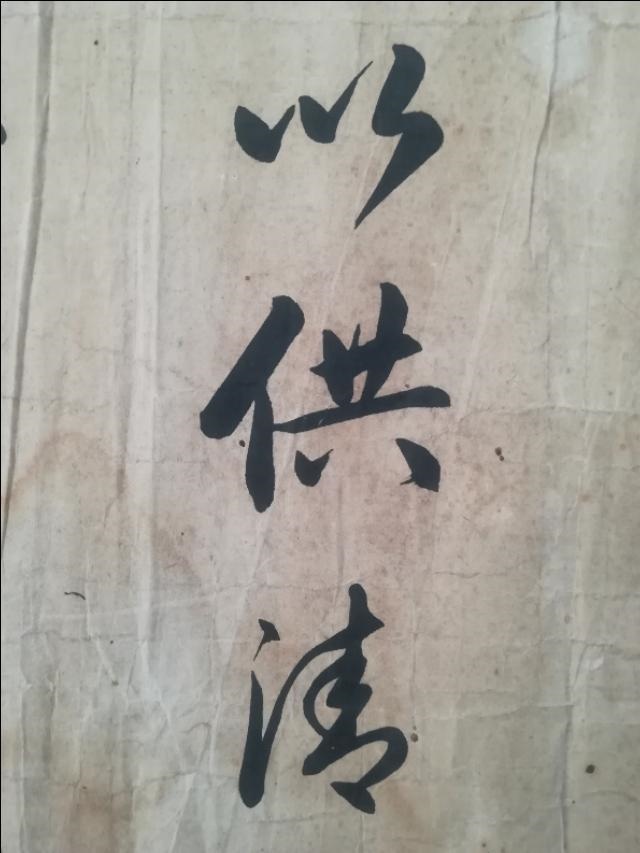 以供清